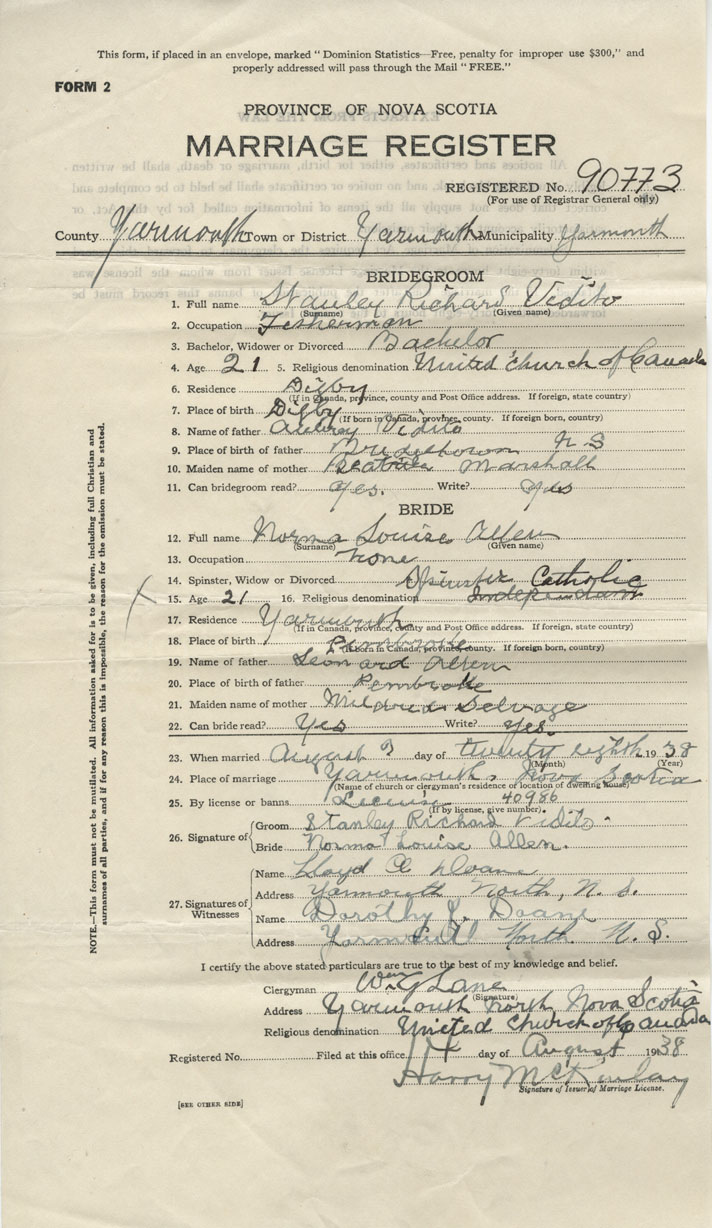 This form, if placed in an envelope, marked "Dominion Statistics—Free, penalty for improper use $300," and
properly addressed will pass through the Mail "FREE."
FORM 2
PROVINCE OF NOVA SCOTIA
MARRIAGE REGISTER
REGISTERED No. 90773
(For use of Registrar General only)
County Yarmouth Town or District Yarmouth Municipality Yarmouth
BRIDEGROOM
1. Full name Stanley Richard Vidito
(Surname) (Given name)
2. Occupation Fisherman
3. Bachelor, Widower or Divorced Bachelor
4. Age 21 5. Religious denomination United Church of Canada
6. Residence Digby
(If in Canada, province, county and Post Office address. If foreign, state country)
7. Place of birth Digby
(If born in Canada, province, county. If foreign born, country)
8. Name of father Aubrey Vidito
9. Place of birth of father Bridgetown N S
10. Maiden name of mother Beatrice Marshall
11. Can bridegroom read? Yes. Write? Yes
BRIDE
12. Full name Norma Louise Allen
(Surname) (Given name)
13. Occupation None
14. Spinster, Widow or Divorced Spinster Catholic
15. Age 21 16. Religious denomination Independant
17. Residence Yarmouth
(If in Canada, province, county and Post Office address. If foreign, state country)
18. Place of birth Pembroke
(If born in Canada, province, county. If foreign born, country)
19. Name of father Leonard Allen
20. Place of birth of father Pembroke
21. Maiden name of mother Mildred Selvage
22. Can bride read? Yes Write? Yes.
23. When married August day of twenty eighth 1938
(Month) (Year)
24. Place of marriage Yarmouth, Nova Scotia
(Name of church or clergyman's residence or location of dwelling house)
25. By license or banns License 40986
(If by license, give number)
26. Signature of Groom Stanley Richard Vidito.
Bride Norma Louise Allen.
27. Signatures of Witnesses Name Lloyd Doane
Address Yarmouth North, N. S.
Name Dorothy L. Doane
Address Yarmouth North N. S.
I certify the above stated particulars are true to the best of my knowledge and belief.
Clergyman Wm G Lane
(Signature)
Address Yarmouth North Nova Scotia
Religious denomination United Church of Canada
Registered No. Filed at this office day of August 1938
Harry McKinlay
Signature of Issuer of Marriage License.
[SEE OTHER SIDE]
NOTE.—This form must not be mutilated. All information asked for is to be given, including full Christian and
surnames of all parties, and if for any reason this is impossible, the reason for the omission must be stated.